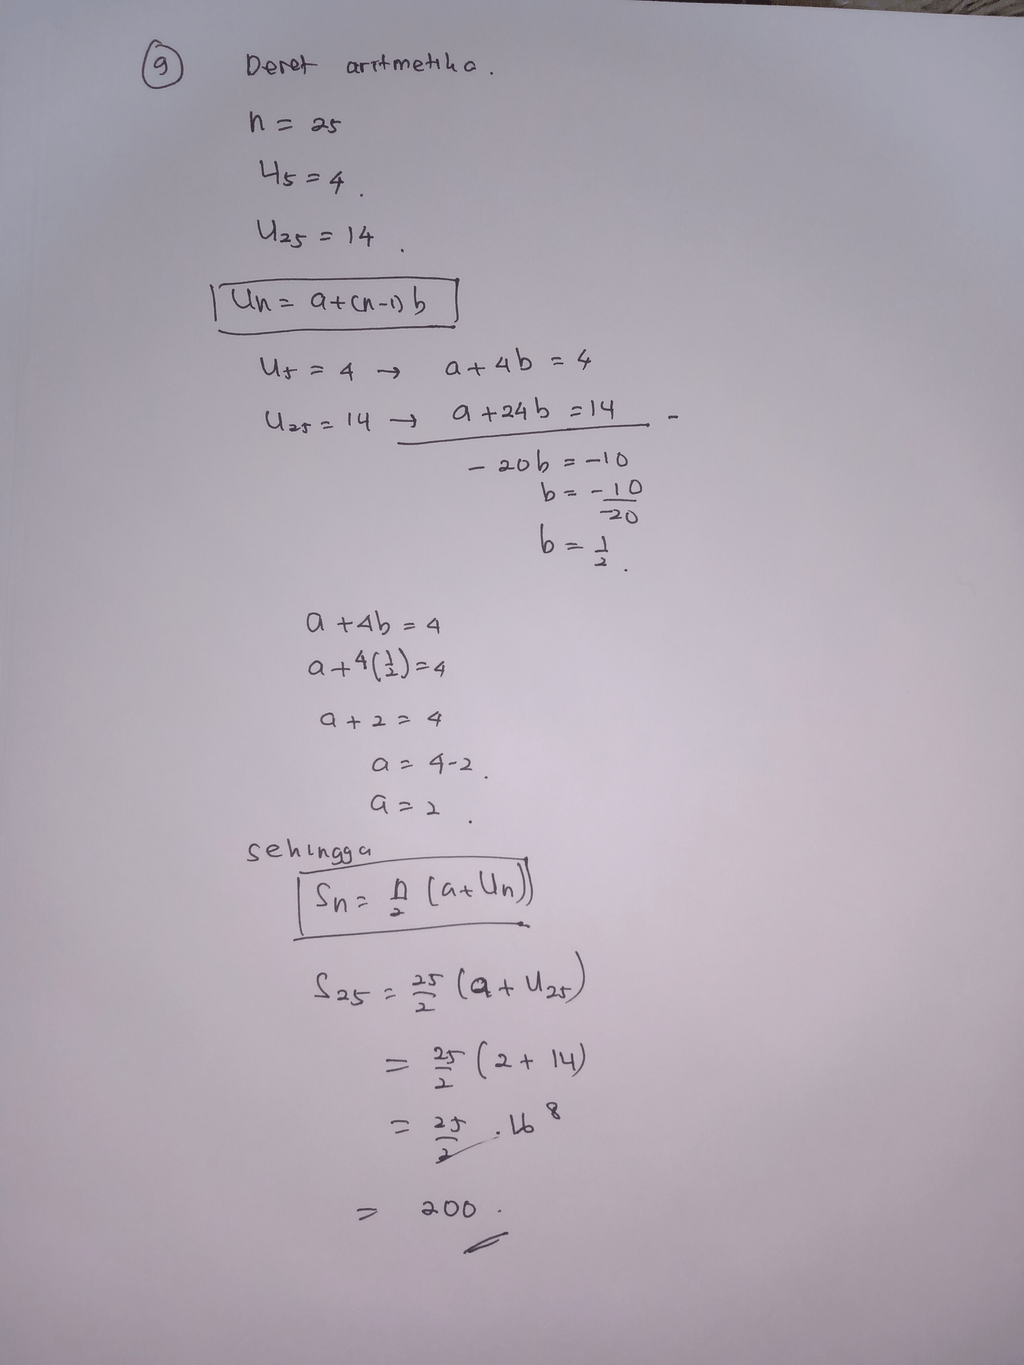 9 Deret aritmetika.
n = 25
U5 = 4.
U25 = 14.
Un = a+(n-1) b
U5 = 4 → a + 4b = 4
U25 = 14 → a + 24b = 14 -
- 20b = -10
b = -10/-20
b = 1/2.
a + 4b = 4
a + 4(1/2) = 4
a + 2 = 4
a = 4-2.
a = 2.
sehingga
Sn = n/2 (a+Un))
S25 = 25/2 (a + U25)
= 25/2 (2 + 14)
= 25/2 . 16 8
= 200.